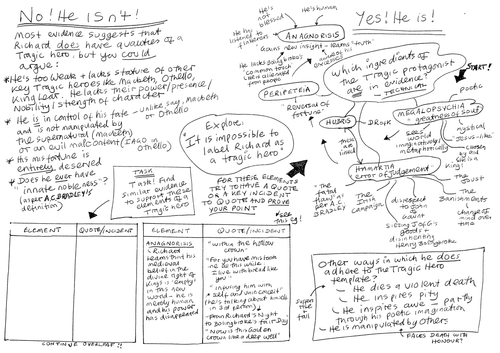 No! He Isn't!
Most evidence suggests that
Richard does have qualities of a
Tragic hero. but you could
argue:
* He's too weak + lacks stature of other
key Tragic heroes like Macbeth, Othello,
King Lear. He lacks their power/presence/
Nobility/strength of character
* He is in control of his fate - unlike, say, Macbeth
or Othello
and is not manipulated by
the supernatural (Macbeth)
or an evil malcontent (IAGO in
Othello)
* His misfortune is
entirely deserved
* Does he ever have
"innate nobleness"?
(as per A.C. BRADLEY'S
definition)
TASK
Task! Find
similar evidence
to support these
elements of a
Tragic hero
ELEMENT
QUOTE/INCIDENT
CONTINUE OVERLEAF!!
Explore:
'It is impossible to
label Richard as
a tragic hero'
FOR THESE ELEMENTS
TRY TO HAVE A QUOTE
OR A KEY INCIDENT
TO QUOTE AND PROVE
YOUR POINT
see this eg!
ELEMENT
QUOTE/INCIDENT
ANAGNORISIS
Richard
learns that his
medieval
belief in the
divine right of
Kings is 'empty'
in this new
world - he is
merely human
and his power
has disappeared
"within the hollow
crown"
"For you have mistook
me all this while
I live with bread like
you"
"infusing him with
self and vain conceit"
(he's talking about himself
in 3rd person)
From Richard's night
to Bolingbroke's fair Day
"Now is this golden
crown like a deep well"
Yes! He is!
He's not blessed
He's human
He has listened to flatterers
ANAGNORISIS
Gains new insight - learns "truth"
He lacks Bolingbroke's
"common touch"
+ was alienated
from people
PERIPETEIA
"Reversal of
fortune"
Which ingredients of
the Tragic protagonist
are in evidence?
- TECHNICAL
START!
HUBRIS
- DR JSK
MEGALOPSYCHIA
"greatness of soul"
poetic
sees
world
imaginatively/
metaphorically
mystical
Jesus-like
chosen
by God
is a
King!
HAMARTIA
error of judgement
"The
fatal
flaw" as
per A.C.
BRADLEY
The
Irish
Campaign
disrespect
to John
of Gaunt
Seizing J of G's
goods +
disinheriting
Henry Bolingbroke
The
Joust
The
Banishments
change of
mind over
time
Other ways in which he does
adhere to the Tragic Hero
template?
- He dies a violent death
- He inspires pity
- He inspires awe - partly
through his poetic imagination
- He is manipulated by others
- FACES DEATH WITH
HONOUR?